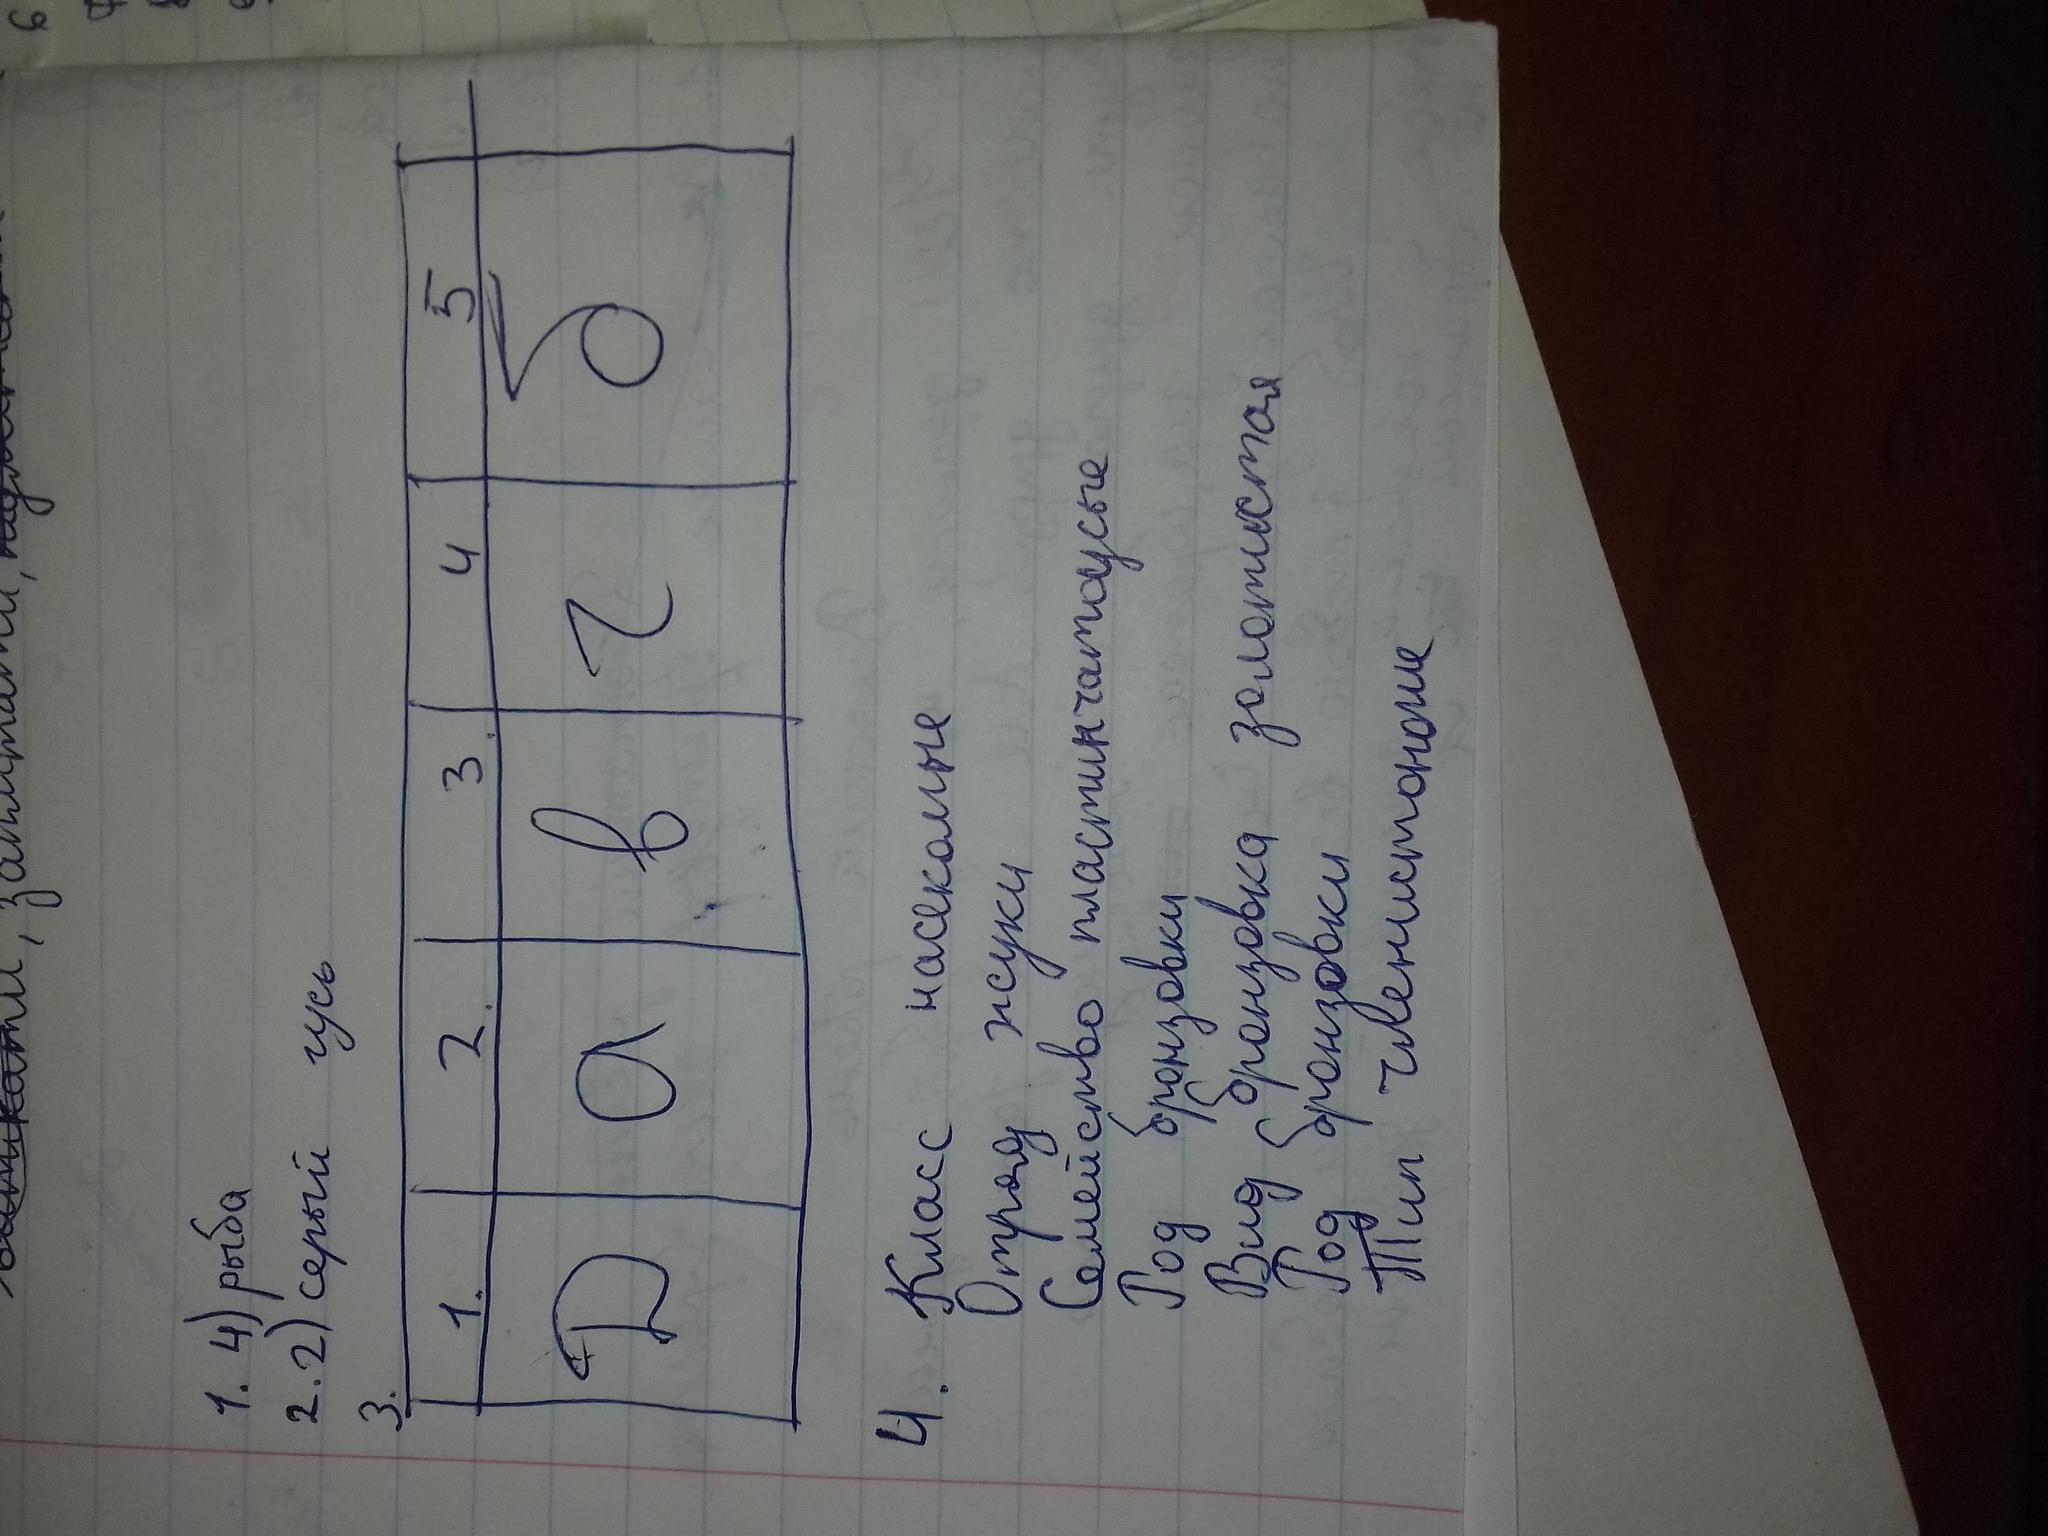 , залатати,
1. 4) рыба
2. 2) серый гусь
3.
1. 2. 3. 4 5
Д а в г б
4. Класс насекомые
Отряд жуки
Семейство пластинчатоусые
Род бронзовки
Вид бронзовка золотистая
Род бронзовки
Тип членистоногие